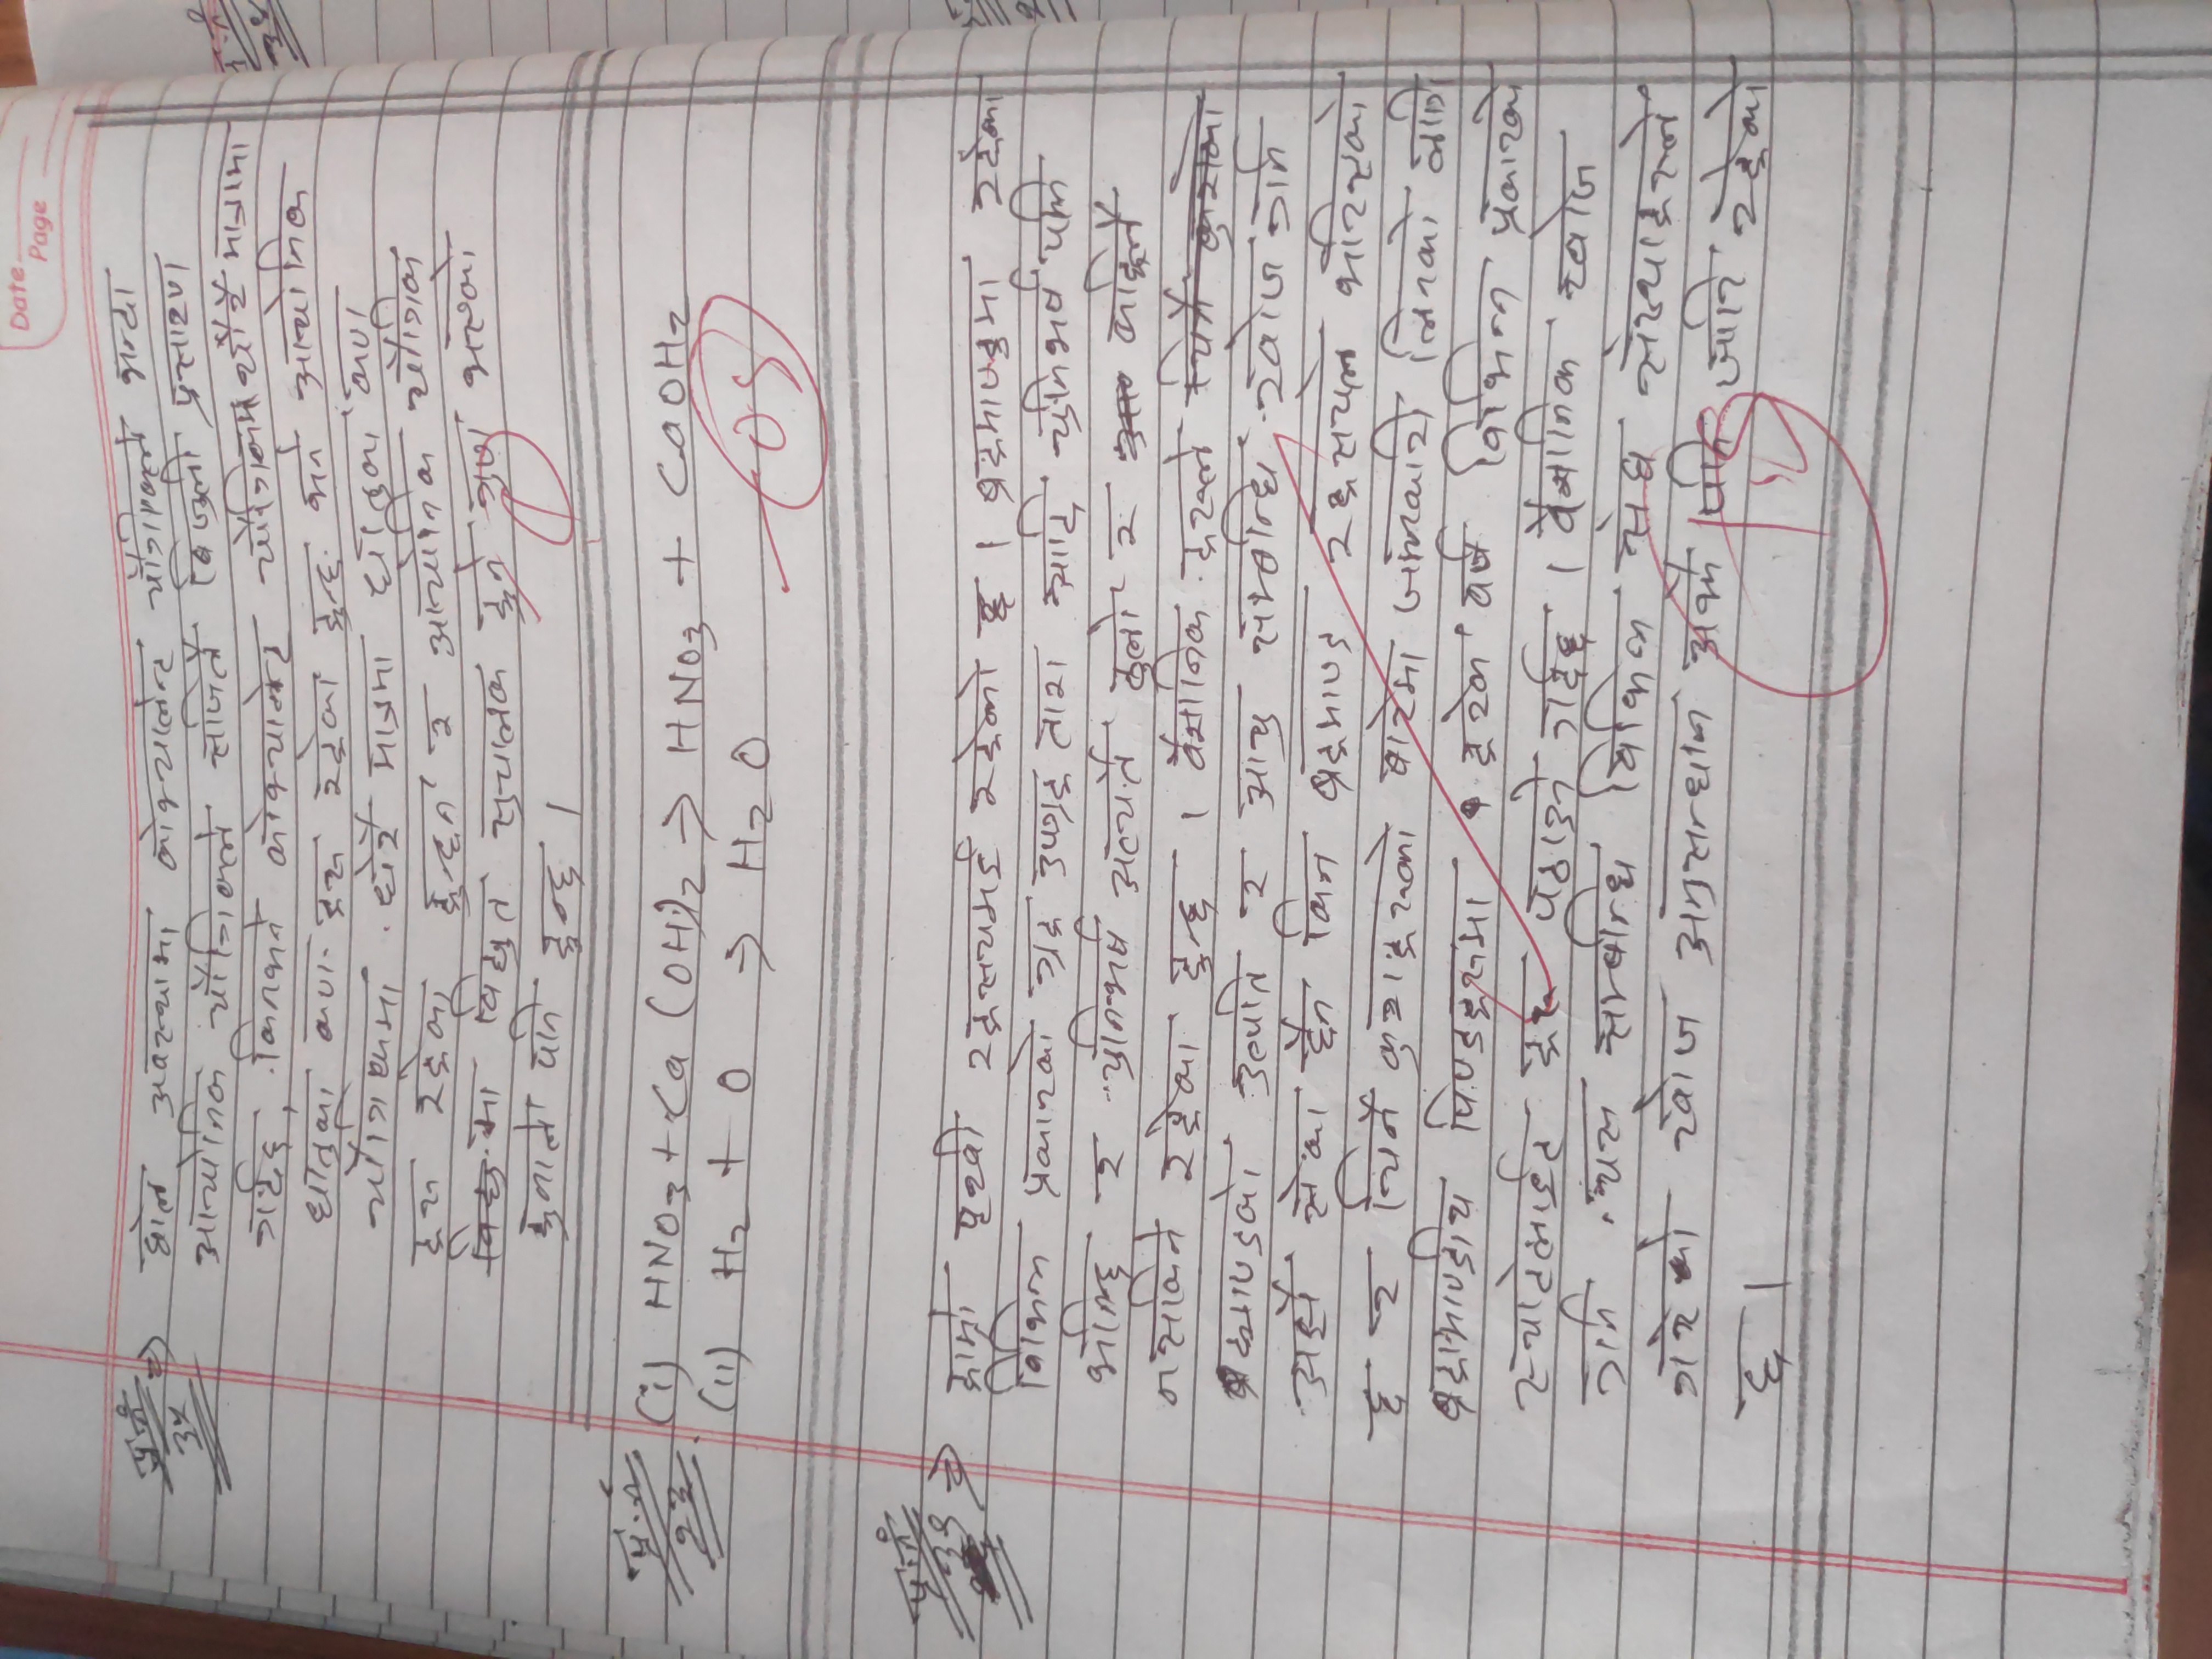 Date
Page
प्र.नं ३५ => घोल अवस्थामा कोभ्यालेन्ट यौगिकले भन्दा
आयोनिक यौगिकले सजिलै बिजुली प्रसारण
गर्दछ, किनभने कोभ्यालेन्ट यौगिकमा थोरै मात्रामा
धातुका कण हरू रहेका हुन्छ भने आयोनिक
यौगिकमा धेरै मात्रमा धातुका कण
हरू रहेका हुन्छन र आयोनिक यौगिक
मा विद्युत सुचालक हुने गुण भएको
हुनाले पनि हुन्छ ।
1
प्र.नं २३ (i) HNO3 + Ca (OH)2 → HNO3 + CaOH2
(ii) H2 + O → H2O
05
प्र.नं => हाम्रो पृथ्वी रहसयमई रहेको छ । ब्रहमाण्डमा रहेका
विभिन्न प्रकारको ग्रह उपग्रह तारा आदि युनिभर्ष पनि
भनिन्छ र युनिभर्ष अत्यतै ठुलो र कहिल्नै
नसकिने रहेका हुन्छ । वैज्ञानिक हरुले
ब्रह्माण्डको उत्पति र आयु सम्बन्धि खोज गर्न
अझै सेका छैन किन ब्रहमाण्ड रहसयले भरिएको
छ र तिनै कुराहरुको बारेमा जानकारी लिनको लागि
ब्रहामाण्डीय पिण्डहरुमा हरेक वर्ष विभिन्न प्रकारको
स्याटेलाईट हरु पठाउने गर्दछ । वैज्ञानिक खोज
गर्न यस सम्बन्धि विभिन्न संघ संस्थाहरुले
गरेको खोज अनुसन्धान अझै पनि जारि रहेको
छ ।